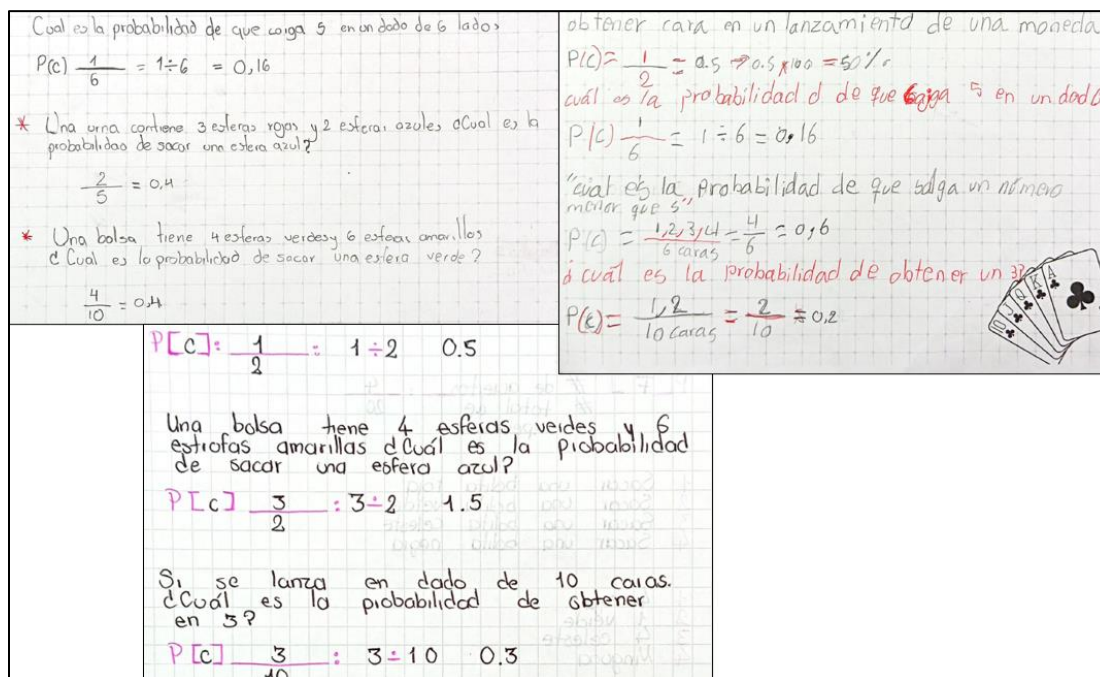 Cual es la probabilidad de que caiga 5 en un dado de 6 lados
P(c) 1/6 = 1÷6 = 0,16
* Una urna contiene 3 esferas rojas y 2 esferas azules ¿Cual es la
probabilidad de sacar una esfera azul?
2/5 = 0,4
* Una bolsa tiene 4 esferas verdes y 6 esferas amarillas
¿Cual es la probabilidad de sacar una esfera verde?
4/10 = 0,4
obtener cara en un lanzamiento de una moneda
P(C) = 1/2 = 0.5 → 0.5 x 100 = 50%
cuál es la probabilidad d de que caiga 5 en un dado
P(C) 1/6 = 1÷6 = 0,16
"cual es la probabilidad de que salga un número
menor que 5"
P(C) = 1,2,3,4/6 caras = 4/6 = 0,6
¿cuál es la probabilidad de obtener un 3?
P(C) = 1,2/10 caras = 2/10 = 0,2
10 J Q K A
P[C]: 1/2 : 1÷2 0.5
Una bolsa tiene 4 esferas verdes y 6
estrofas amarillas ¿Cuál es la probabilidad
de sacar una esfera azul?
P[C] 3/2 : 3÷2 1.5
Si se lanza en dado de 10 caras.
¿Cuál es la probabilidad de obtener
en 3?
P[C] 3/10 : 3÷10 0.3